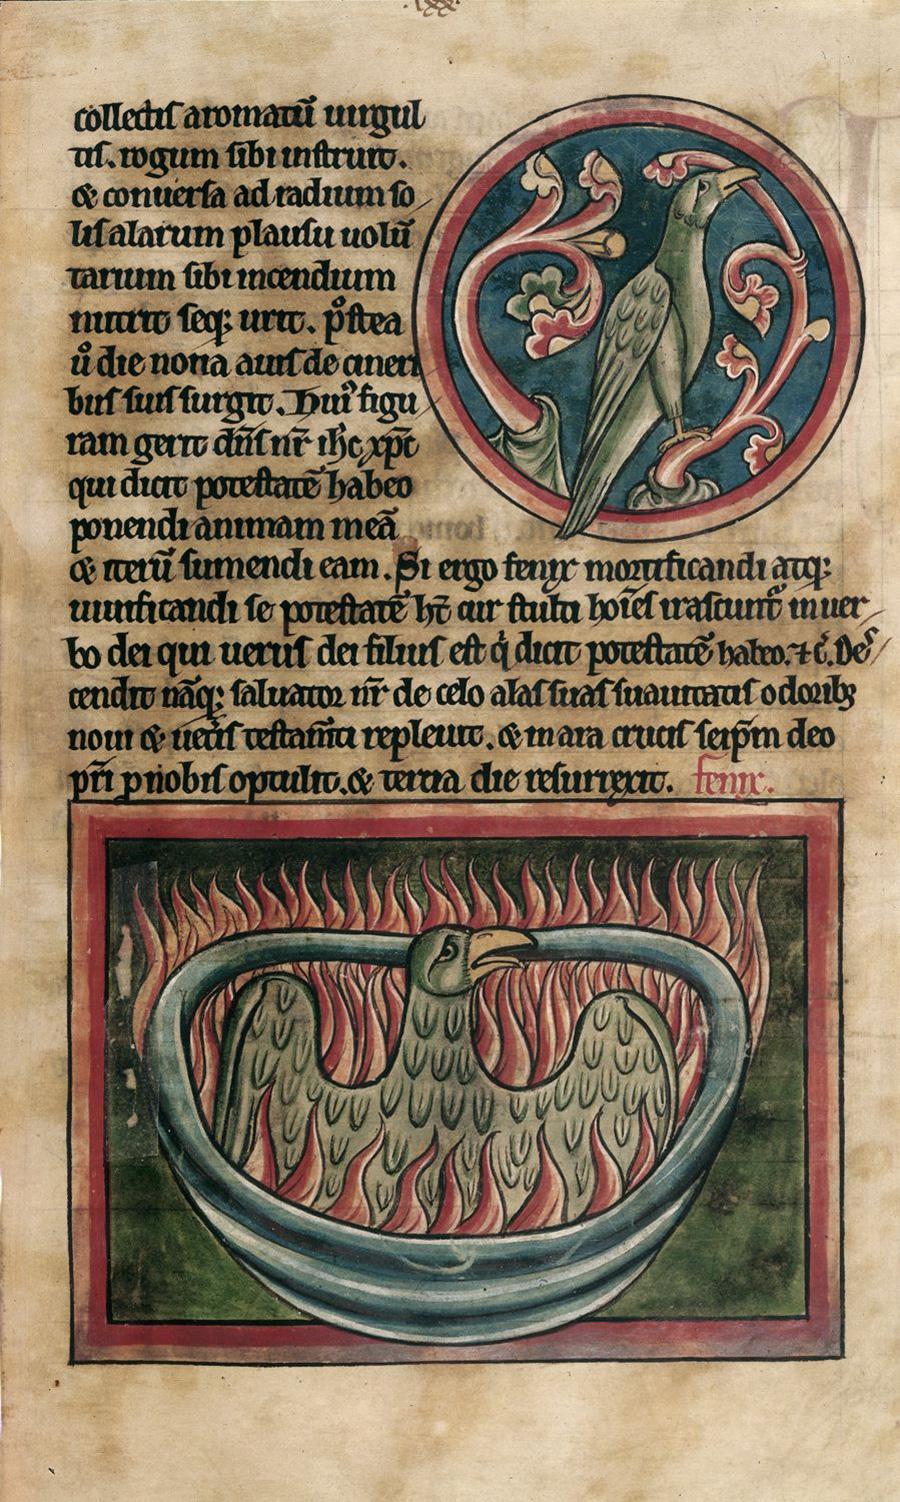 collectis aromatū uirgul
tis. rogum sibi instruit.
& conuersa ad radium so
lis alarum plausu uolū
tarium sibi incendium
nutrit seq; urit. p̾ stea
ů die nona auis de cineri
bus suis surgit. Hui᷒ figu
ram gerit dn̄s nr̄ ih̄c xp̄c
qui dicit potestatē habeo
ponendi animam meā
& iterū sumendi eam. Si ergo fenix mortificandi atq;
uiuificandi se potestatē ht̄ cur stulti hoīes irascunt̾ in uer
bo dei qui uerus dei filius est q̇ dicit potestatē habeo. ⁊ c̄. Des
cendit nāq; saluator nr̄ de celo alas suas suauitatis odorib;
noui & uet̾is testam̄ti repleuit. & in ara crucis seip̄m deo
pr̄i p nobis optulit. & tercia die resurrexit. fenix.